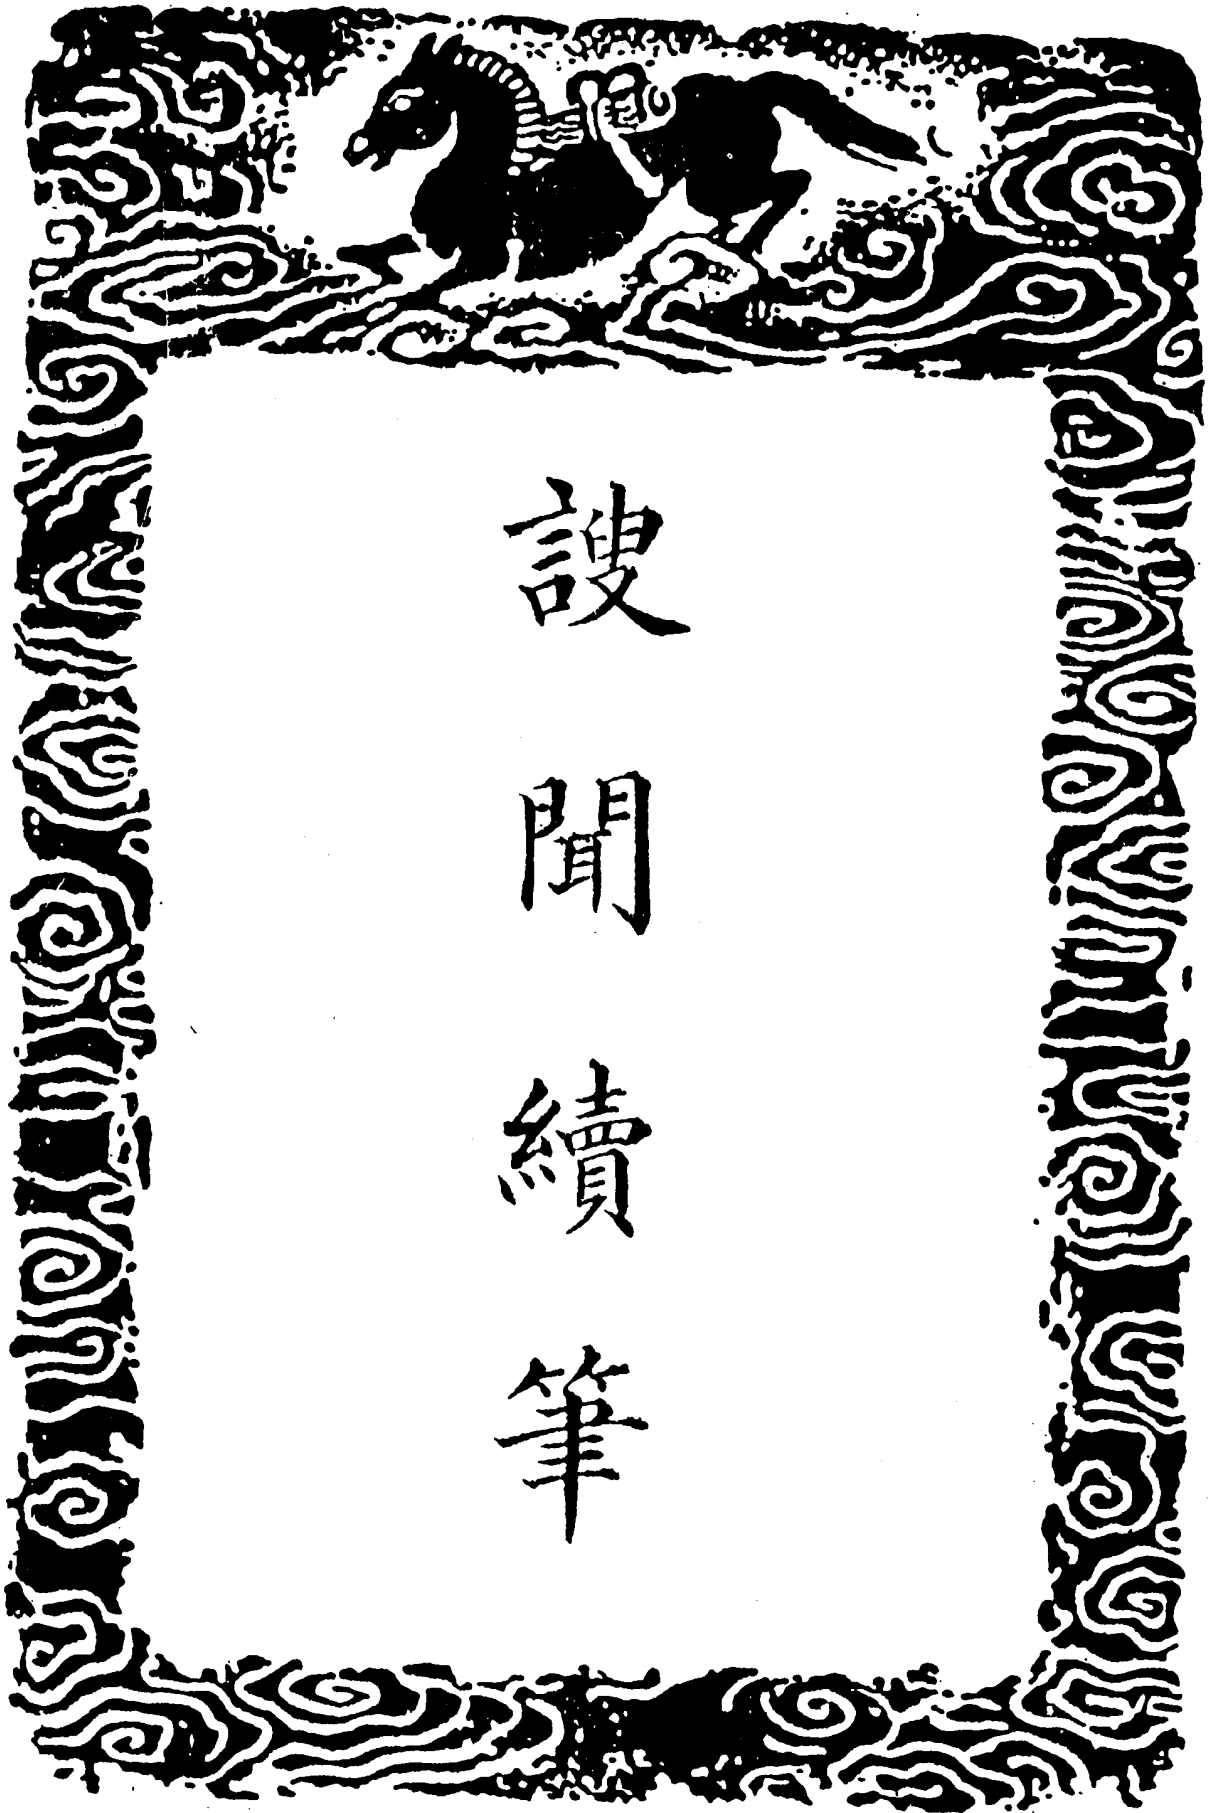 謏聞續筆